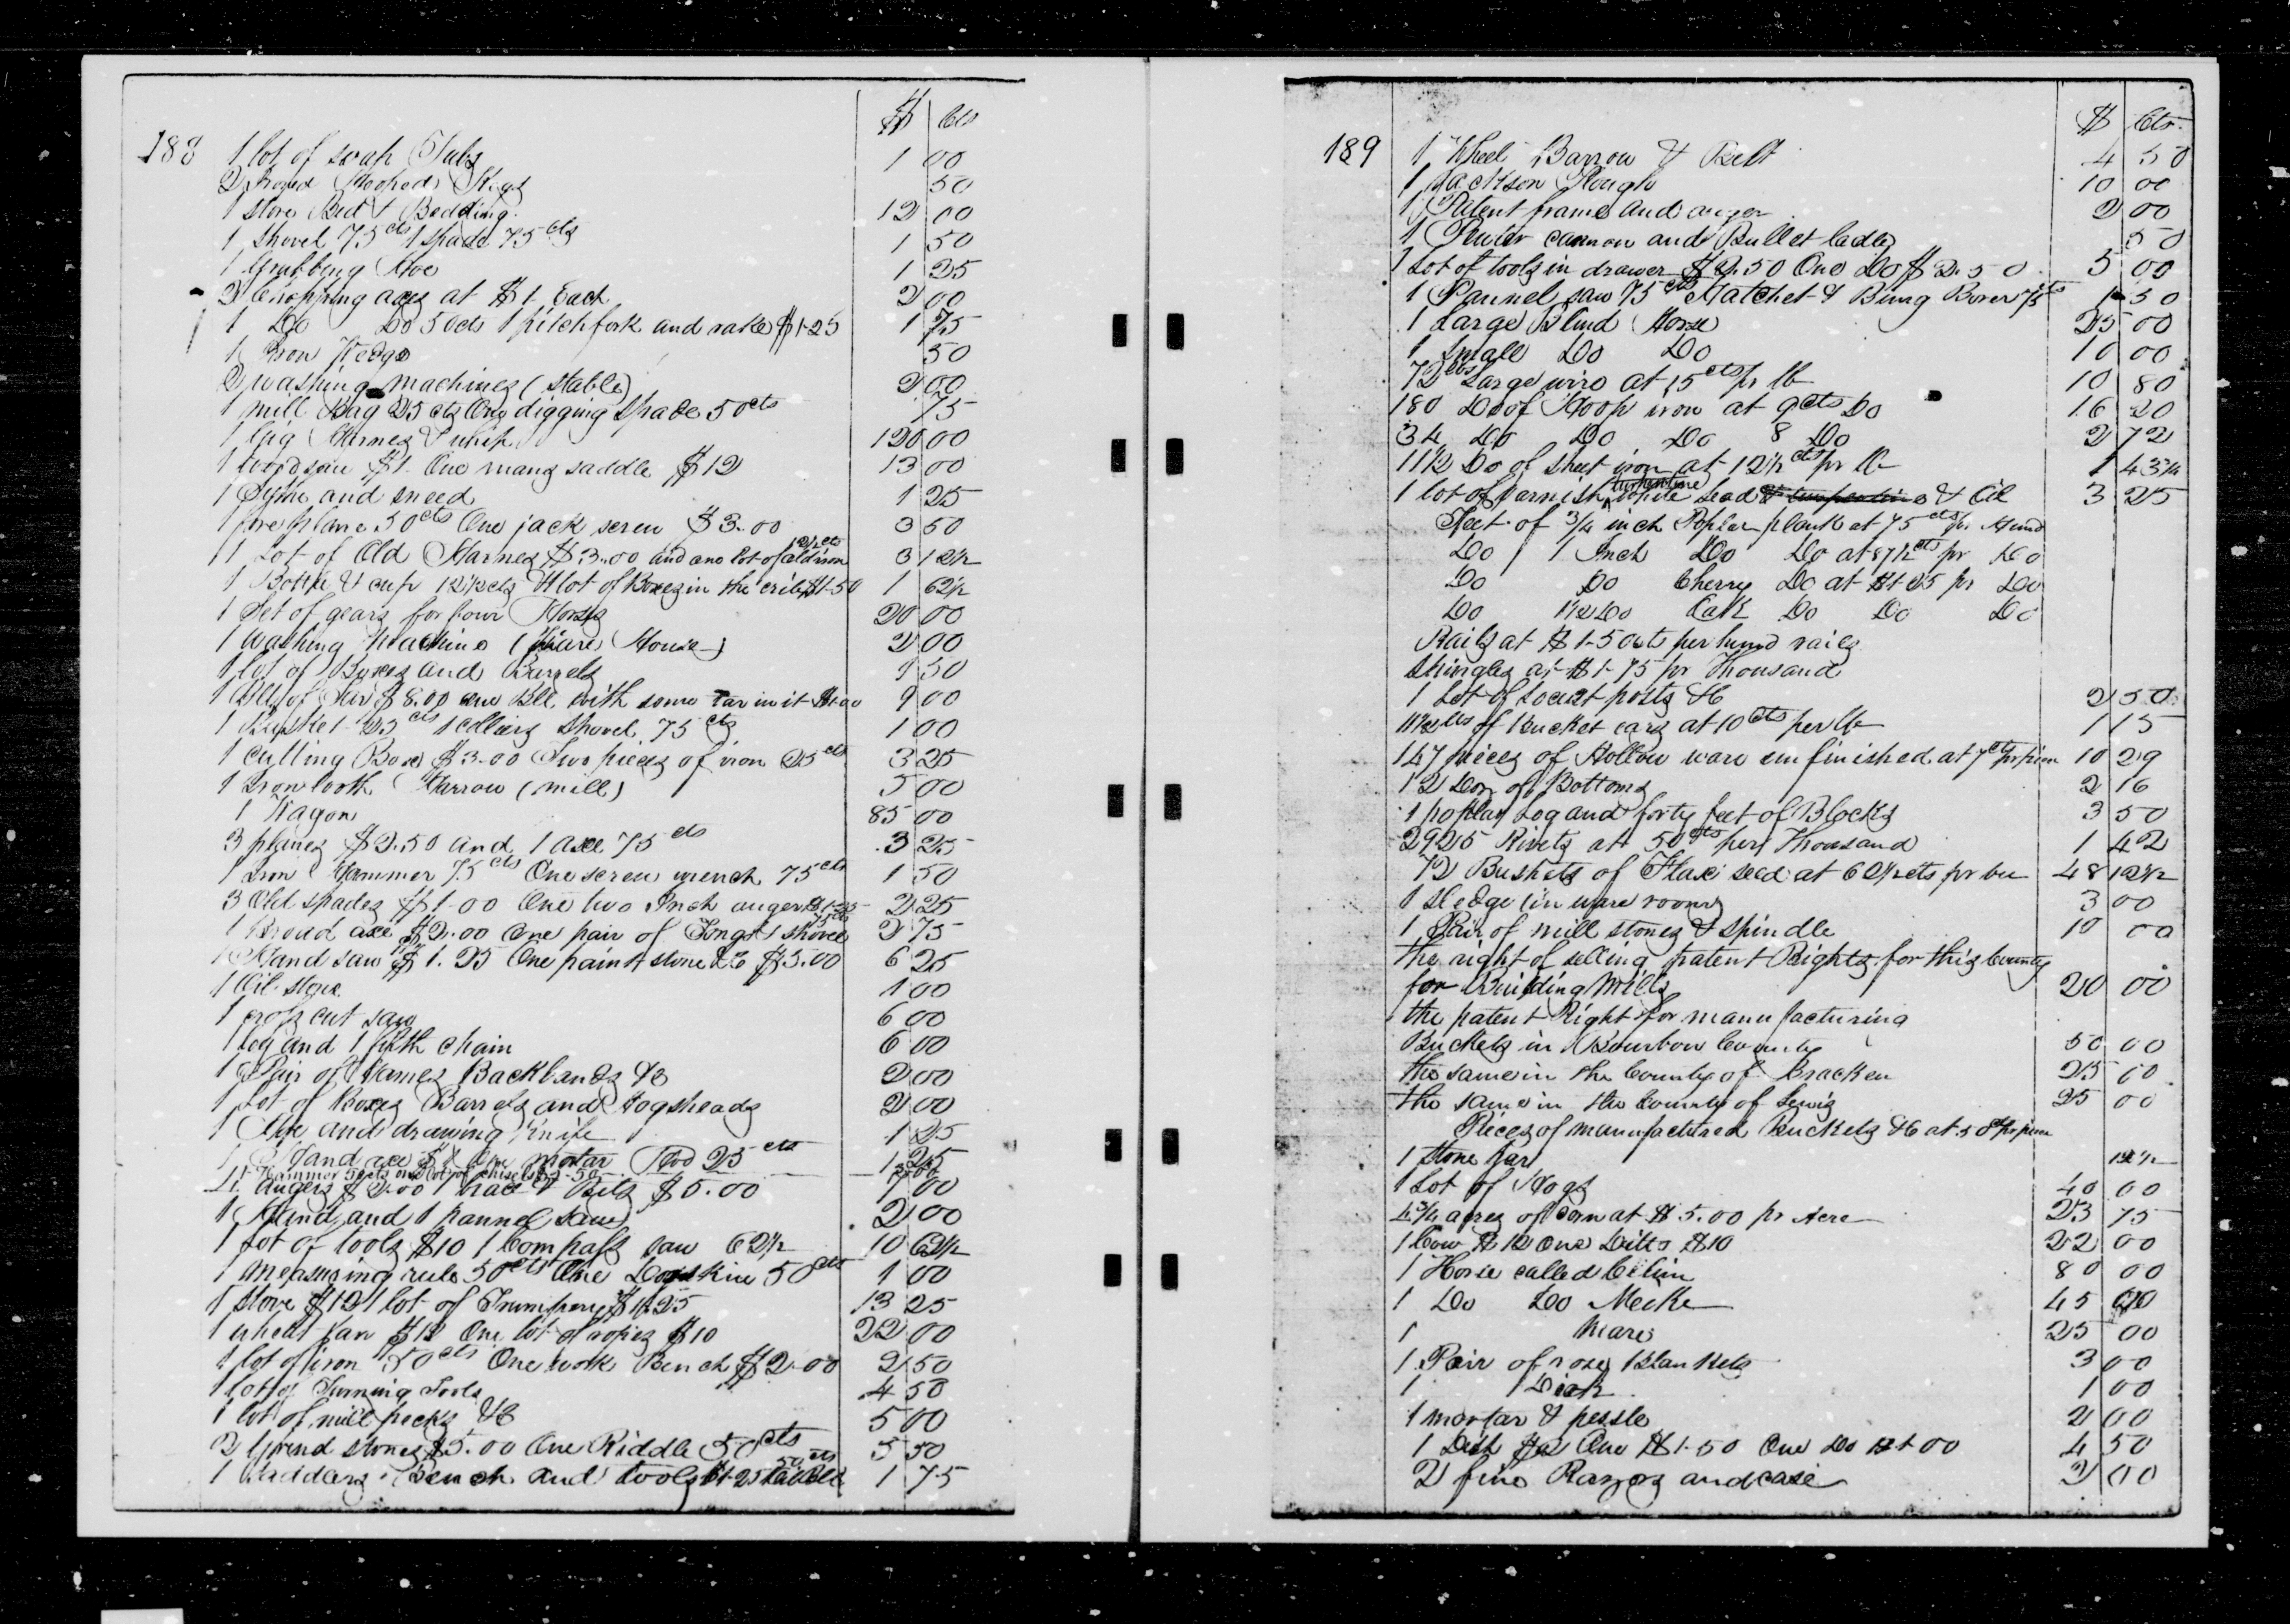 $ Cts
188 1 lot of soap Tubs 1 00
2 Iron Hooped Kegs 50
1 stove Bed & Bedding 12 00
1 Shovel 75 cts 1 spade 75 cts 1 50
1 Grubbing Hoe 1 25
2 Chopping axes at $1 Each 2 00
1 Do Do 50cts 1 pitchfork and rake $1-25 1 75
1 Iron Wedge 50
2 washing machines (stable) 2 00
1 mill Bag 25 cts One digging Spade 50cts 75
1 Gig Harness & whip 120 00
1 wood saw $1- One mans saddle $12 13 00
1 Sythe and sneed 1 25
1 fore plane 50cts One jack screw $3.00 3 50
1 Lot of Old Harness $3.00 and one lot of old iron 12½cts 3 12½
1 Bottle & cup 12½cts 1 lot of Boxes in the crib $1-50 1 62½
1 Set of gears for four Horses 20 00
1 Washing Machine (Ware House) 2 00
1 lot of Boxes and Barrels 1 50
1 Bll of Tar $8.00 one Bll with some Tar in it $1-00 9 00
1 25 cts 1 colliers Shovel 75 cts 1 00
1 Cutting Box $3-00 Two pieces of iron 25 cts 3 25
1 Iron tooth Harrow (mill) 5 00
1 Wagon 85 00
3 planes $2.50 and 1 axe 75 cts 3 25
1 Iron Hammer 75 cts One screw wrench 75 cts 1 50
3 Old spades $1-00 One two Inch auger $1-25 2 25
1 Broad axe $2.00 One pair of Tongs 1 Shovel 75 cts 2 75
1 Hand saw $1.25 One paint stone &c $5.00 6 25
1 Oil stone 1 00
1 cross cut saw 6 00
1 log and 1 fifth chain 6 00
1 Pair of Hames Backbands &c 2 00
1 Lot of Boxes Barrels and Hogsheads 2 00
1 and drawing Knife 1 25
1 Hand axe One mortar 25 cts 1 25
Hammer 50cts one lot of chisels $2-50 3 00
4 augers $2.00 1 brace & Bits $5.00 7 00
1 Hand and 1 pannel saw 2 00
1 Lot of tools $10 1 Compass saw 62½ 10 62½
1 measuring rule 50cts One Dogskin 50cts 1 00
1 Stove $12 1 lot of Trumpery $1.25 13 25
1 wheat fan $12 One lot of ropes $10 22 00
1 lot of iron 50cts One work Bench $2-00 2 50
1 lot of Turning Tools 4 50
1 lot of mill pecks &c 5 00
2 Grind stones $5.00 One Riddle 50cts 5 50
1 Saddlers Bench and tools $1-25 50 cts 1 75
$ Cts
189 1 Wheel Barrow & Belt 4 50
1 Jackson Plough 10 00
1 Patent frame and auger 2 00
1 Pewter cannon and Bullet ladle 50
1 Lot of tools in drawer $2.50 One Do $2.50 5 00
1 Pannel saw 75 cts Hatchet & Bung Borer 75 1 50
1 Large Blind Horse 25 00
1 Small Do Do 10 00
72 lbs Large wire at 15 cts pr lb 10 80
180 Do of Hoop iron at 9cts Do 16 20
34 Do Do Do 8 Do 2 72
11½ Do of sheet iron at 12½ cts pr lb 1 43¾
1 lot of varnish turpentine white lead & turpentine & Oil 3 25
Feet of ¾ inch Poplar plank at 75 cts pr Hund
Do 1 Inch Do Do at 87½ cts pr Do
Do Do Cherry Do at $1 25 pr Do
Do 1½ Do Oak Do Do Do
Rails at $1-50cts per hund rails
Shingles at $1-75 pr Thousand
1 Lot of Locust posts &c 2 50
11½ lbs of Bucket ears at 10 cts per lb 1 15
147 pieces of Hollow ware unfinished at 7 cts pr piece 10 29
12 Doz of Bottoms 2 16
1 poplar Log and forty feet of Blocks 3 50
2925 Rivets at 50 cts per Thousand 1 42
72 Bushels of Flax seed at 62½cts pr bu 48 12½
1 sledge (in ware room) 3 00
1 Pair of mill stones & spindle 10 00
the right of selling patent Rights for this County
for Building Mills 20 00
the patent Right for manufacturing
Buckets in Bourbon County 50 00
the same in the County of Bracken 25 00
the same in the County of Lewis 25 00
Pieces of manufactured Buckets &c at 50cts pr piece
1 Stone Jar 12½
1 Lot of Hogs 40 00
4¾ acres of Corn at $5.00 pr Acre 23 75
1 Cow $12 One Ditto $10 22 00
1 Horse called 80 00
1 Do Do 45 00
1 Mare 25 00
1 Pair of rose Blankets 3 00
1 1 00
1 mortar & pessle 2 00
1 $2 One $1-50 One Do $1 00 4 50
2 fine Razors and case 2 00